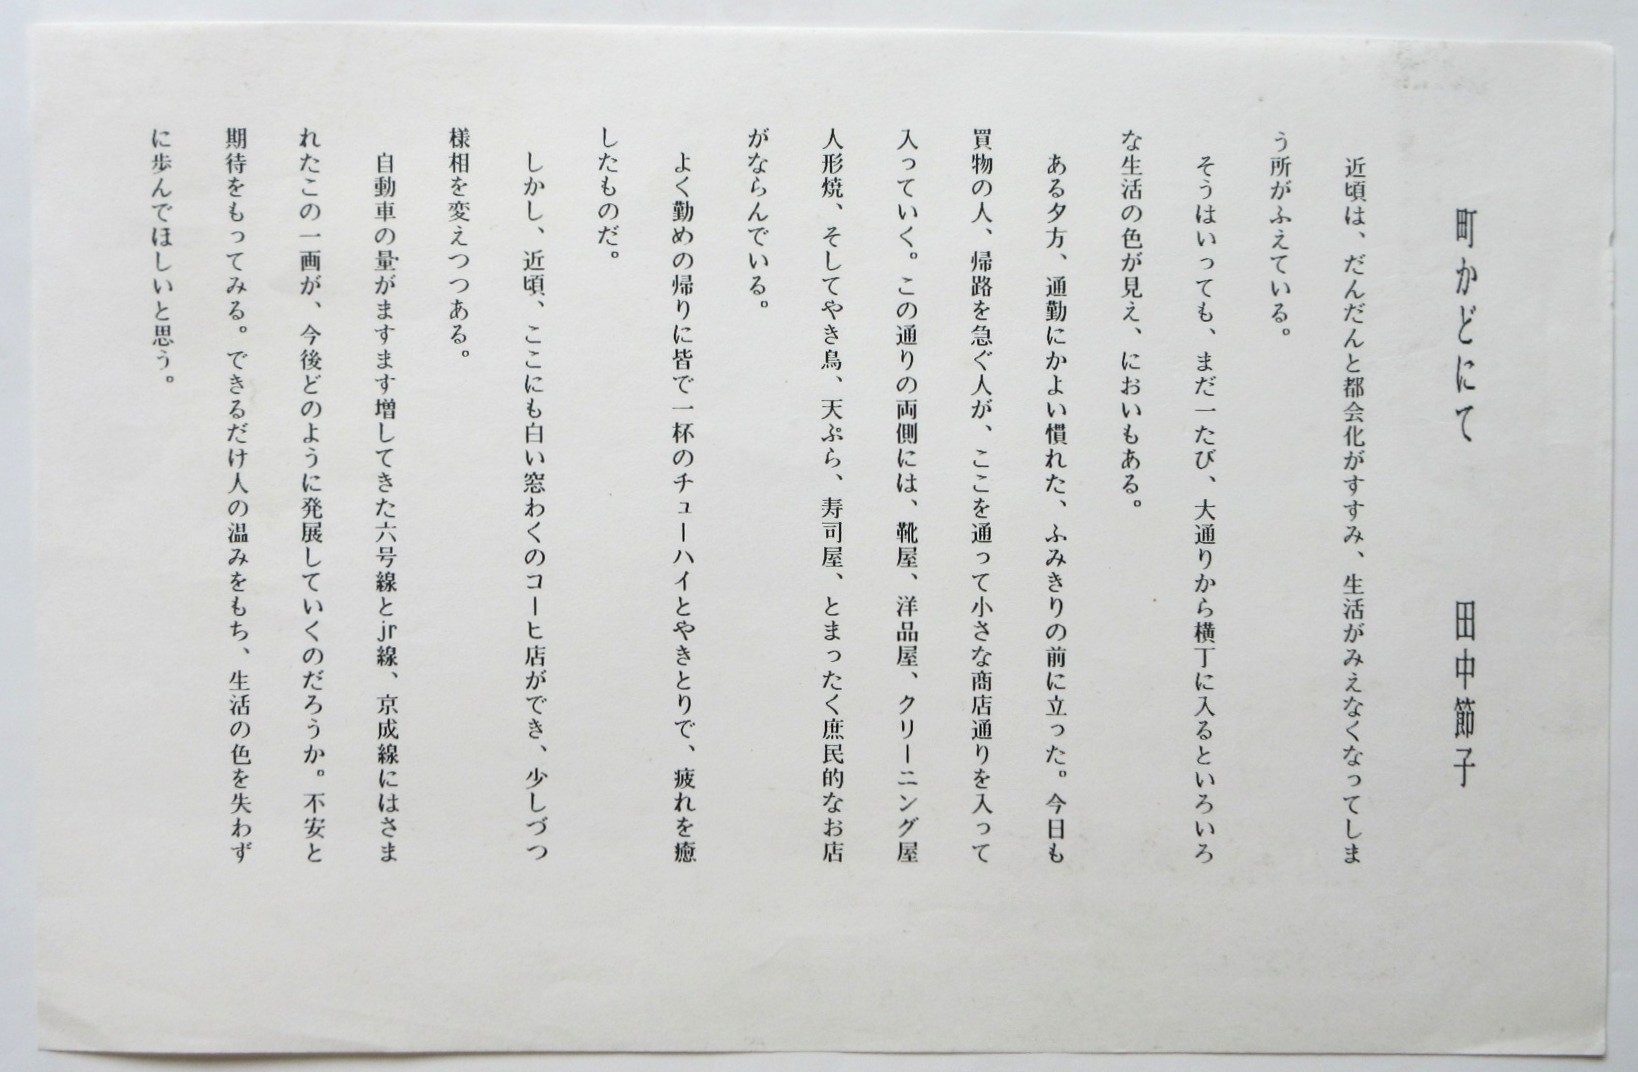 町かどにて　田中節子
近頃は、だんだんと都会化がすすみ、生活がみえなくなってしま
う所がふえている。
そうはいっても、まだ一たび、大通りから横丁に入るといろいろ
な生活の色が見え、においもある。
ある夕方、通勤にかよい慣れた、ふみきりの前に立った。今日も
買物の人、帰路を急ぐ人が、ここを通って小さな商店通りを入って
入っていく。この通りの両側には、靴屋、洋品屋、クリーニング屋
人形焼、そしてやき鳥、天ぷら、寿司屋、とまったく庶民的なお店
がならんでいる。
よく勤めの帰りに皆で一杯のチューハイとやきとりで、疲れを癒
したものだ。
しかし、近頃、ここにも白い窓わくのコーヒ店ができ、少しづつ
様相を変えつつある。
自動車の量がますます増してきた六号線とjr線、京成線にはさま
れたこの一画が、今後どのように発展していくのだろうか。不安と
期待をもってみる。できるだけ人の温みをもち、生活の色を失わず
に歩んでほしいと思う。